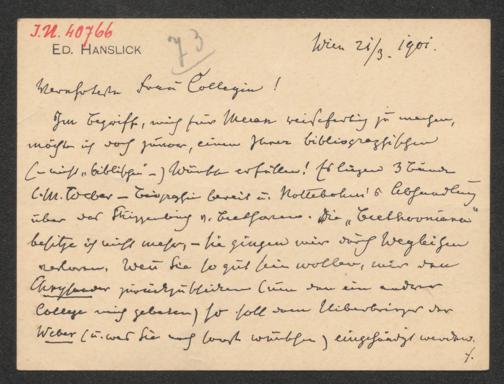 I.N. 40766
ED. HANSLICK
73
Wien 21/3. 1901.
Verehrteste Frau Collegin!
Im Begriff, mich für Meran reisefertig zu machen,
möchte ich doch zuvor, einen Ihrer bibliographischen
(– nicht „biblischen" –) Wünsche erfüllen! Es liegen 3 Bände
C. M. Weber – Biographie bereit u. Nottebohm's Abhandlung
über das Skizzenbuch v. Beethoven. Die „Beethoveniana"
besitze ich nicht mehr, – sie gingen mir durch Wegleihen
verloren. Wenn Sie so gut sein wollen, mir den
Chrysander zurückzuschicken (um den ein anderer
College mich gebeten) so soll dem Ueberbringer der
Weber (u. was Sie noch sonst wünschen) eingehändigt werden.